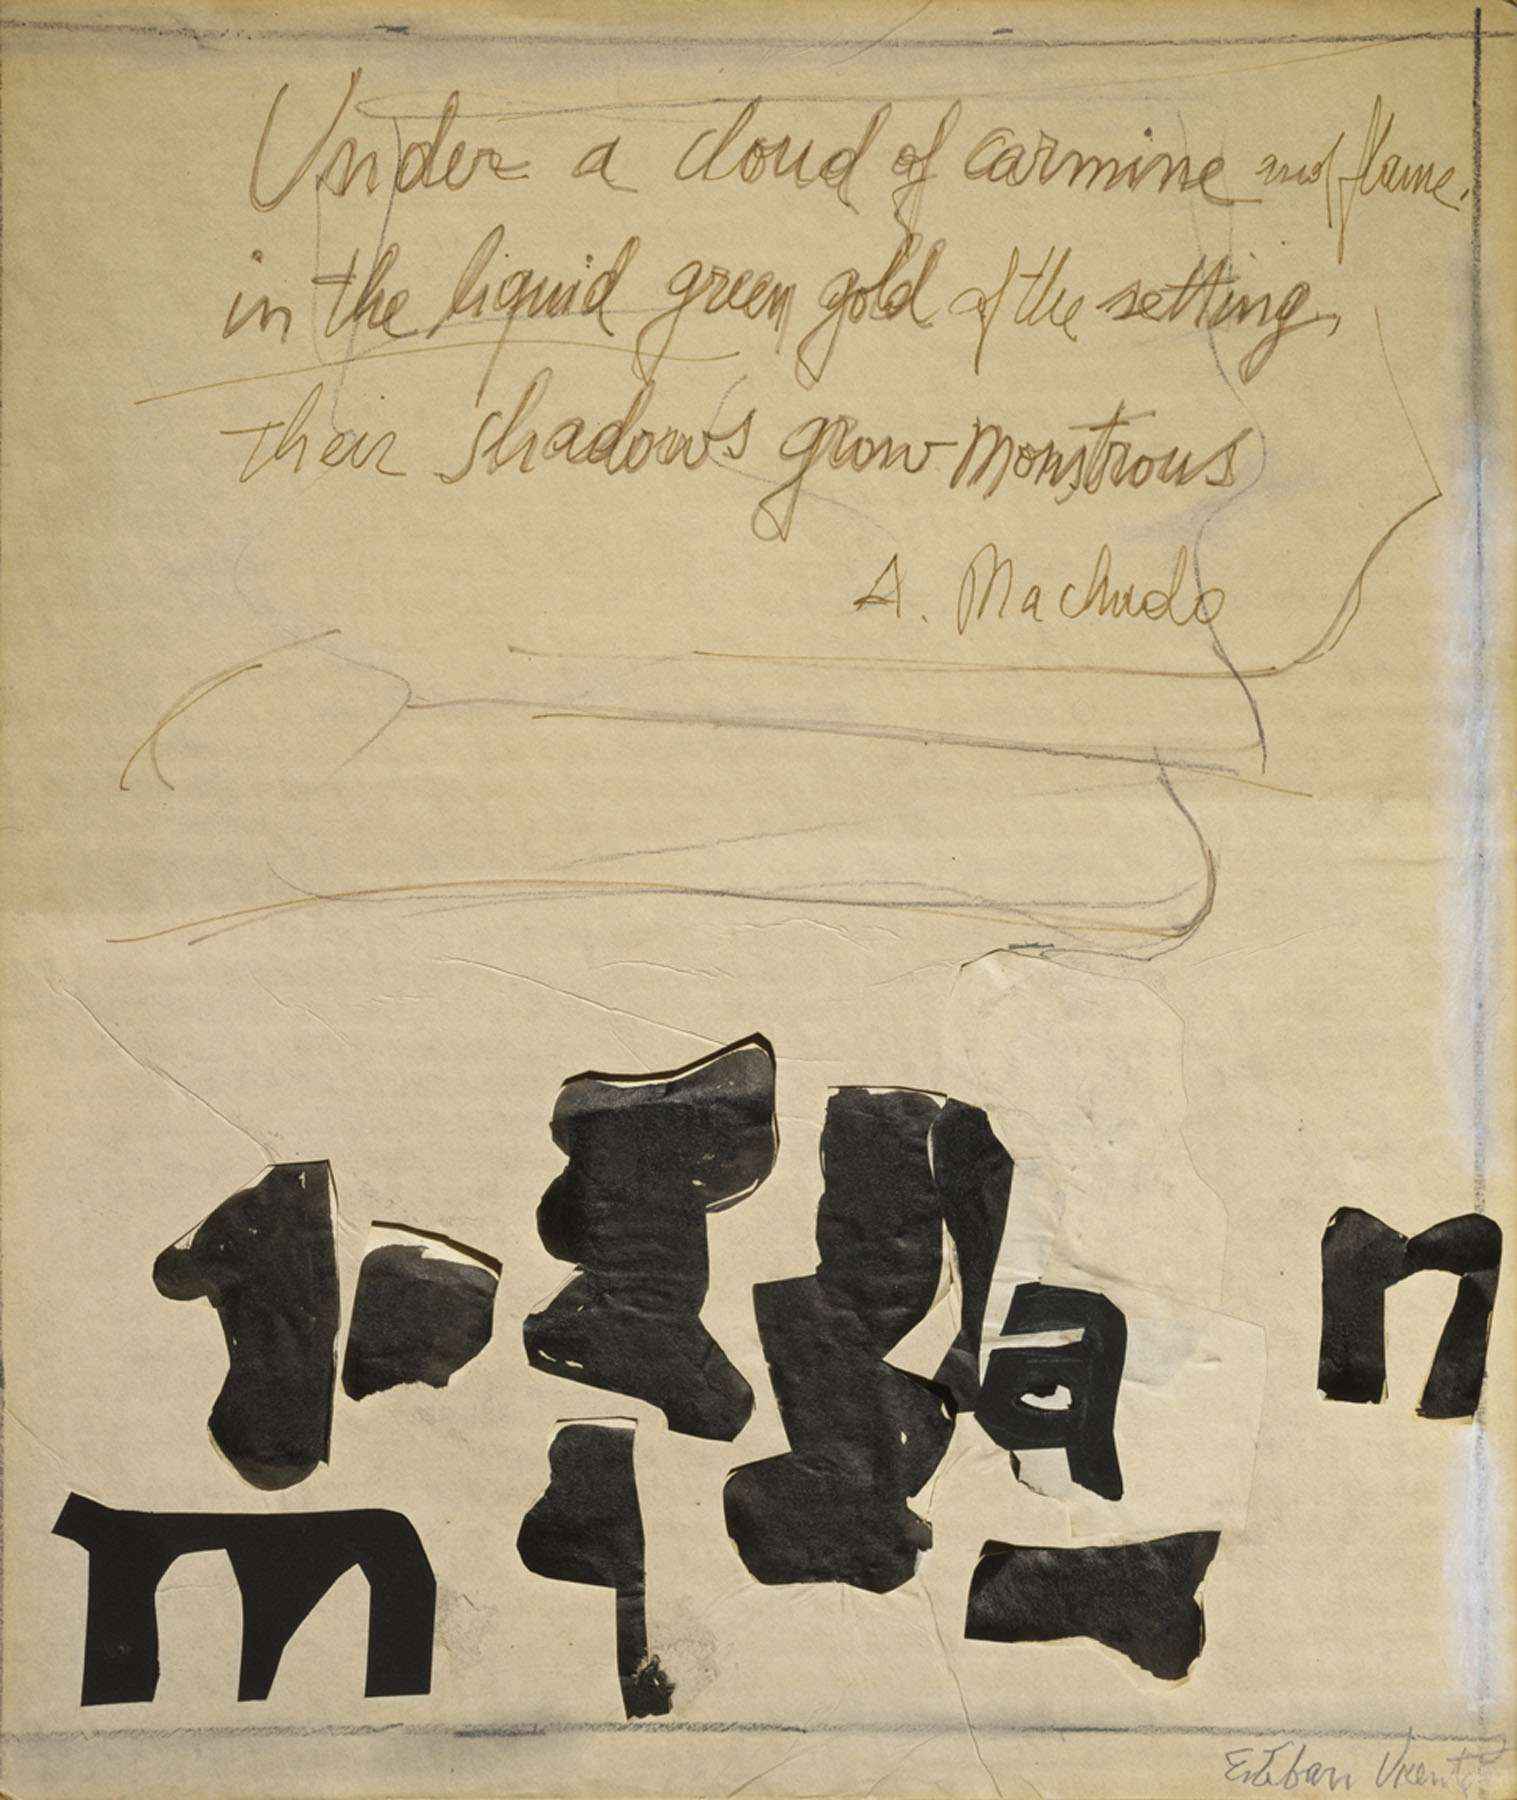 Under a cloud of carmine and flame,
in the liquid green gold of the setting,
their shadows grow monstrous
A. Machado
n
a
m
Esteban Vicente